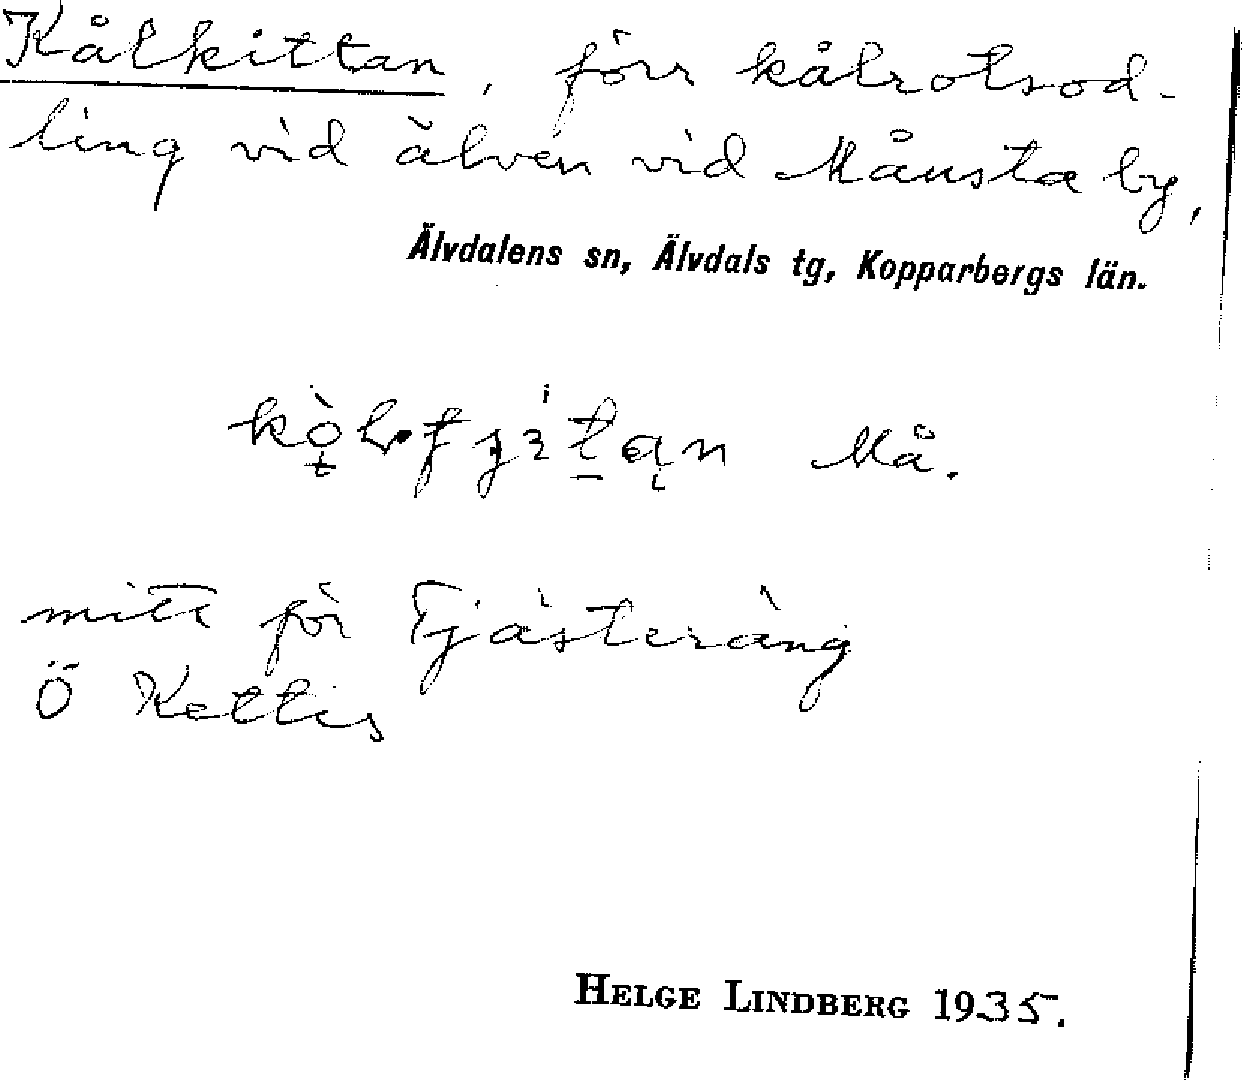 Kålkittan, förr kålrotsod-
ling vid älven vid Månsta by,
Älvdalens sn, Älvdals tg, Kopparbergs län.
Må.
mitt för Tjästeräng
Ö Kettis
HELGE LINDBERG 1935.